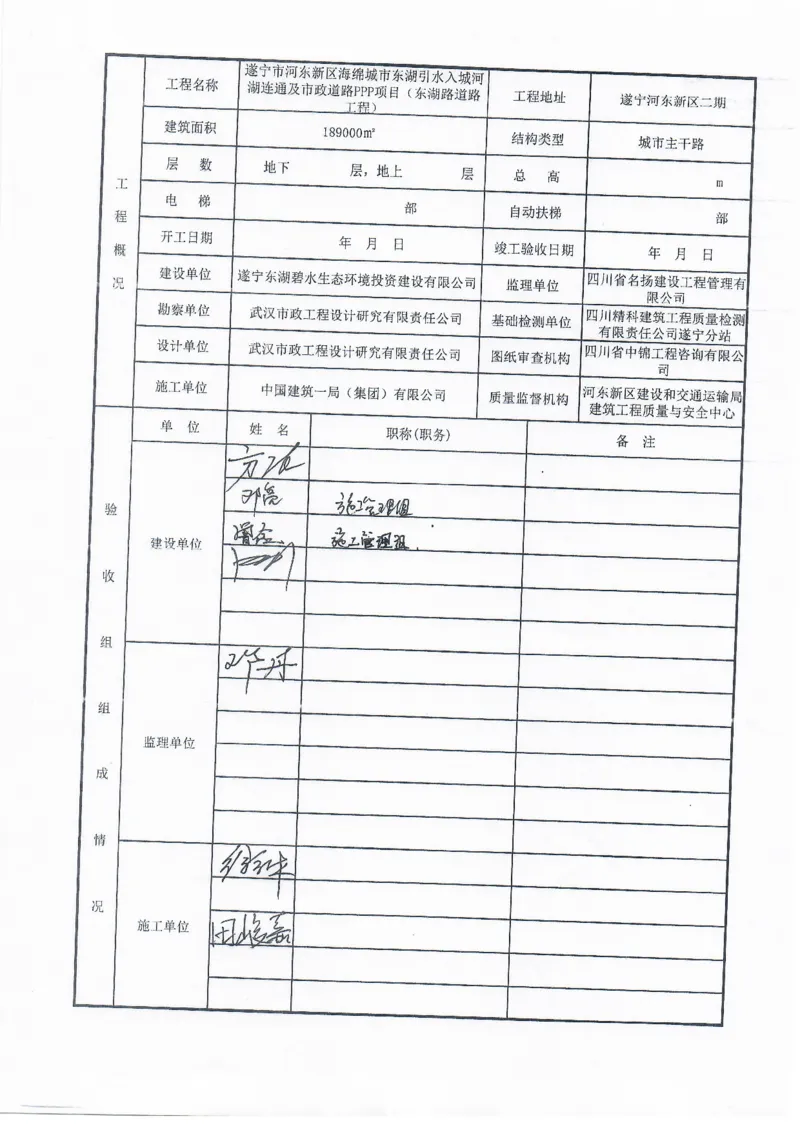 工程概况
工程名称
遂宁市河东新区海绵城市东湖引水入城河
湖连通及市政道路PPP项目（东湖路道路
工程）
工程地址
遂宁河东新区二期
建筑面积
189000㎡
结构类型
城市主干路
层 数
地下 层，地上 层
总 高
m
电 梯
部
自动扶梯
部
开工日期
年 月 日
竣工验收日期
年 月 日
建设单位
遂宁东湖碧水生态环境投资建设有限公司
监理单位
四川省名扬建设工程管理有
限公司
勘察单位
武汉市政工程设计研究有限责任公司
基础检测单位
四川精科建筑工程质量检测
有限责任公司遂宁分站
设计单位
武汉市政工程设计研究有限责任公司
图纸审查机构
四川省中锦工程咨询有限公
司
施工单位
中国建筑一局（集团）有限公司
质量监督机构
河东新区建设和交通运输局
建筑工程质量与安全中心
验收组组成情况
单 位
姓 名
职称(职务)
备 注
建设单位
邓亮
施工管理组
施工管理组
监理单位
施工单位